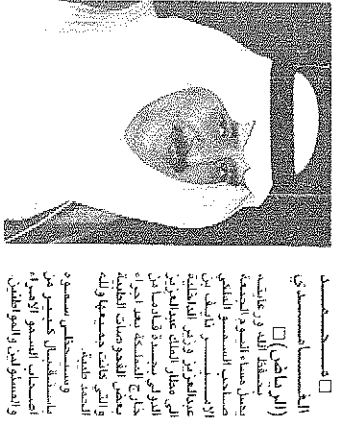 □ محمد
الغامدي
(الرياض) □
بحفظ الله ورعايته
يصل مساء اليوم الجمعة
صاحب السمو الملكي
الأمير نايف بن
عبدالعزيز وزير الداخلية
إلى مطار الملك عبدالعزيز
الدولي بجدة قادما من
خارج المملكة بعد اجراء
بعض الفحوصات الطبية
والتي كانت جميعها ولله
الحمد طيبة.
وسيحظى سموه
باستقبال كبير من
اصحاب السمو الأمراء
والمسئولين والمواطنين.